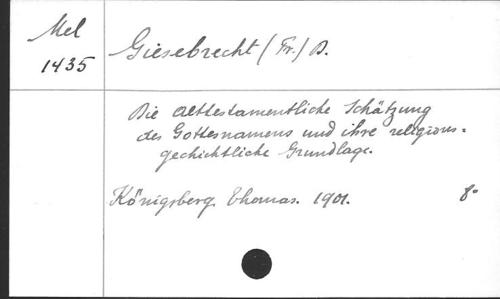 Mel
1435
Giesebrecht (Fr.) D.
Die alttestamentliche Schätzung
des Gottesnamens und ihre religions=
gechichtliche Grundlage.
Königsberg. Thomas. 1901. 8°